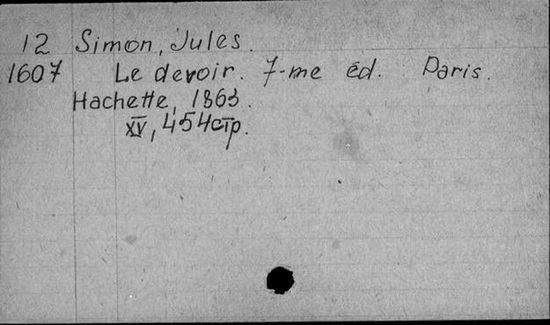 12 Simon, Jules.
1607 Le devoir. 7-me éd. Paris.
Hachette, 1863.
XV, 454 стр.